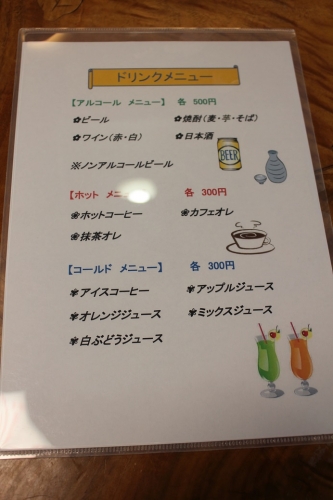 ドリンクメニュー
【アルコール メニュー】 各 500円
✿ビール ✿焼酎(麦・芋・そば)
✿ワイン(赤・白) ✿日本酒
※ノンアルコールビール
BEER
【ホット メニュー】 各 300円
❀ホットコーヒー ❀カフェオレ
❀抹茶オレ
【コールド メニュー】 各 300円
✾アイスコーヒー ✾アップルジュース
✾オレンジジュース ✾ミックスジュース
✾白ぶどうジュース